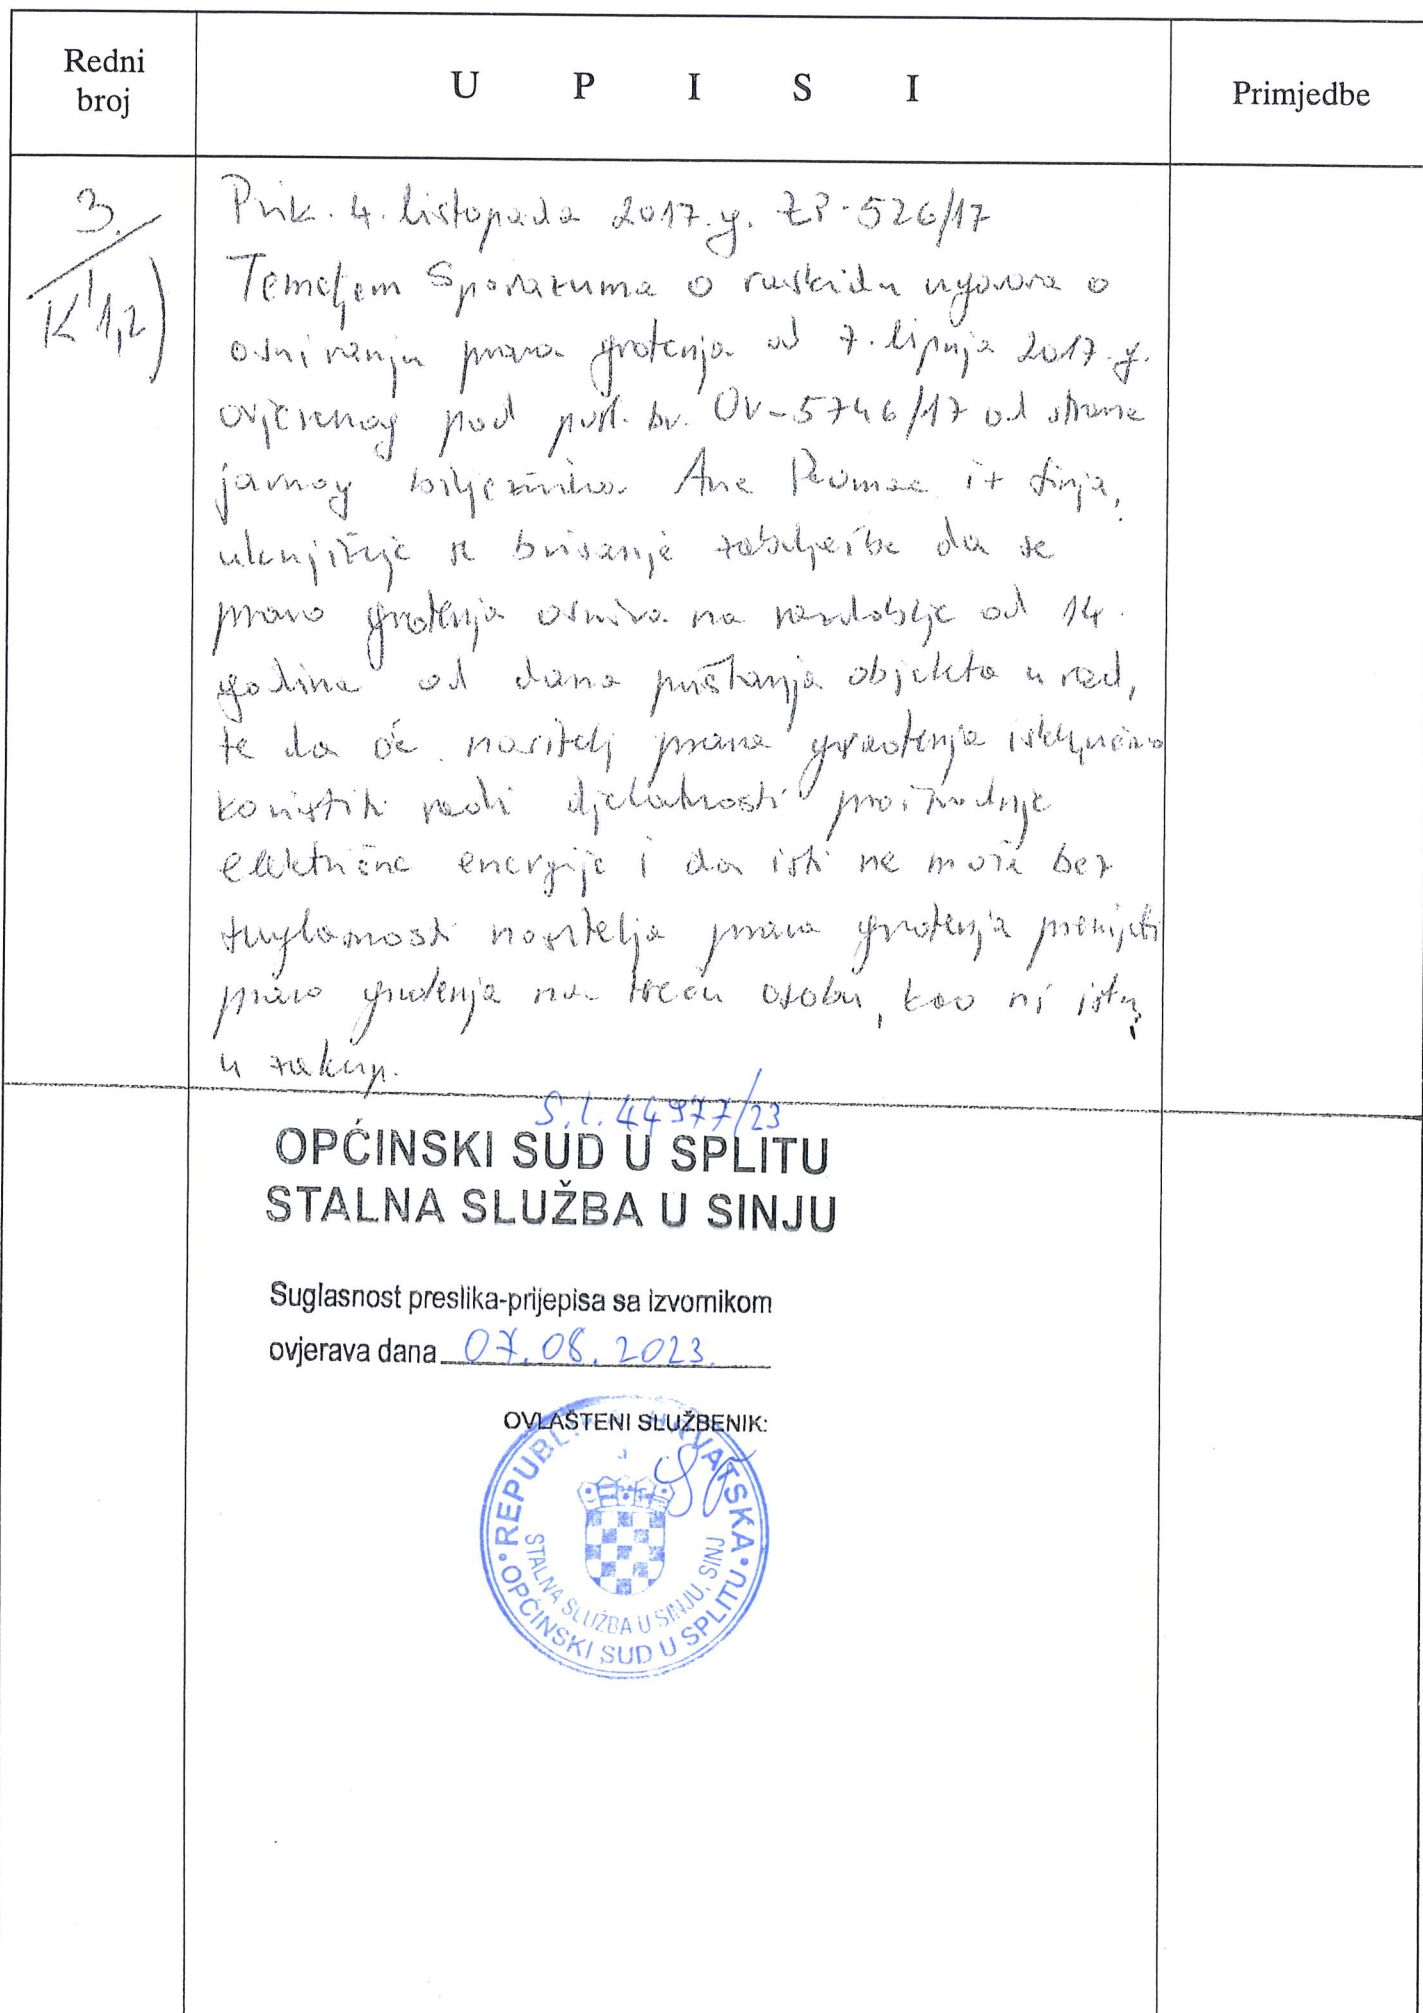 Redni
broj
U P I S I
Primjedbe
3.
K 1,2)
Prik. 4. listopada 2017. g. ZP-526/17
Temeljem Sporazuma o raskidu ugovora o
osnivanju prava građenja od 7. lipnja 2017. g.
ovjerenog pod posl. br. OV-5746/17 od strane
javnog bilježnika Ane iz Sinja,
uknjižuje se brisanje zabilježbe da se
pravo građenja osniva na razdoblje od 14
godina od dana puštanja objekta u rad,
te da će nositelj prava građenja isključivo
koristiti radi djelatnosti proizvodnje
električne energije i da isti ne može bez
suglasnosti nositelja prava građenja prenijeti
pravo građenja na treću osobu, kao ni istu
u zakup.
S.l. 44977/23
OPĆINSKI SUD U SPLITU
STALNA SLUŽBA U SINJU
Suglasnost preslika-prijepisa sa izvornikom
ovjerava dana 07.08.2023.
OVLAŠTENI SLUŽBENIK:
REPUBLIKA HRVATSKA
STALNA SLUŽBA U SINJU, SINJ
OPĆINSKI SUD U SPLITU